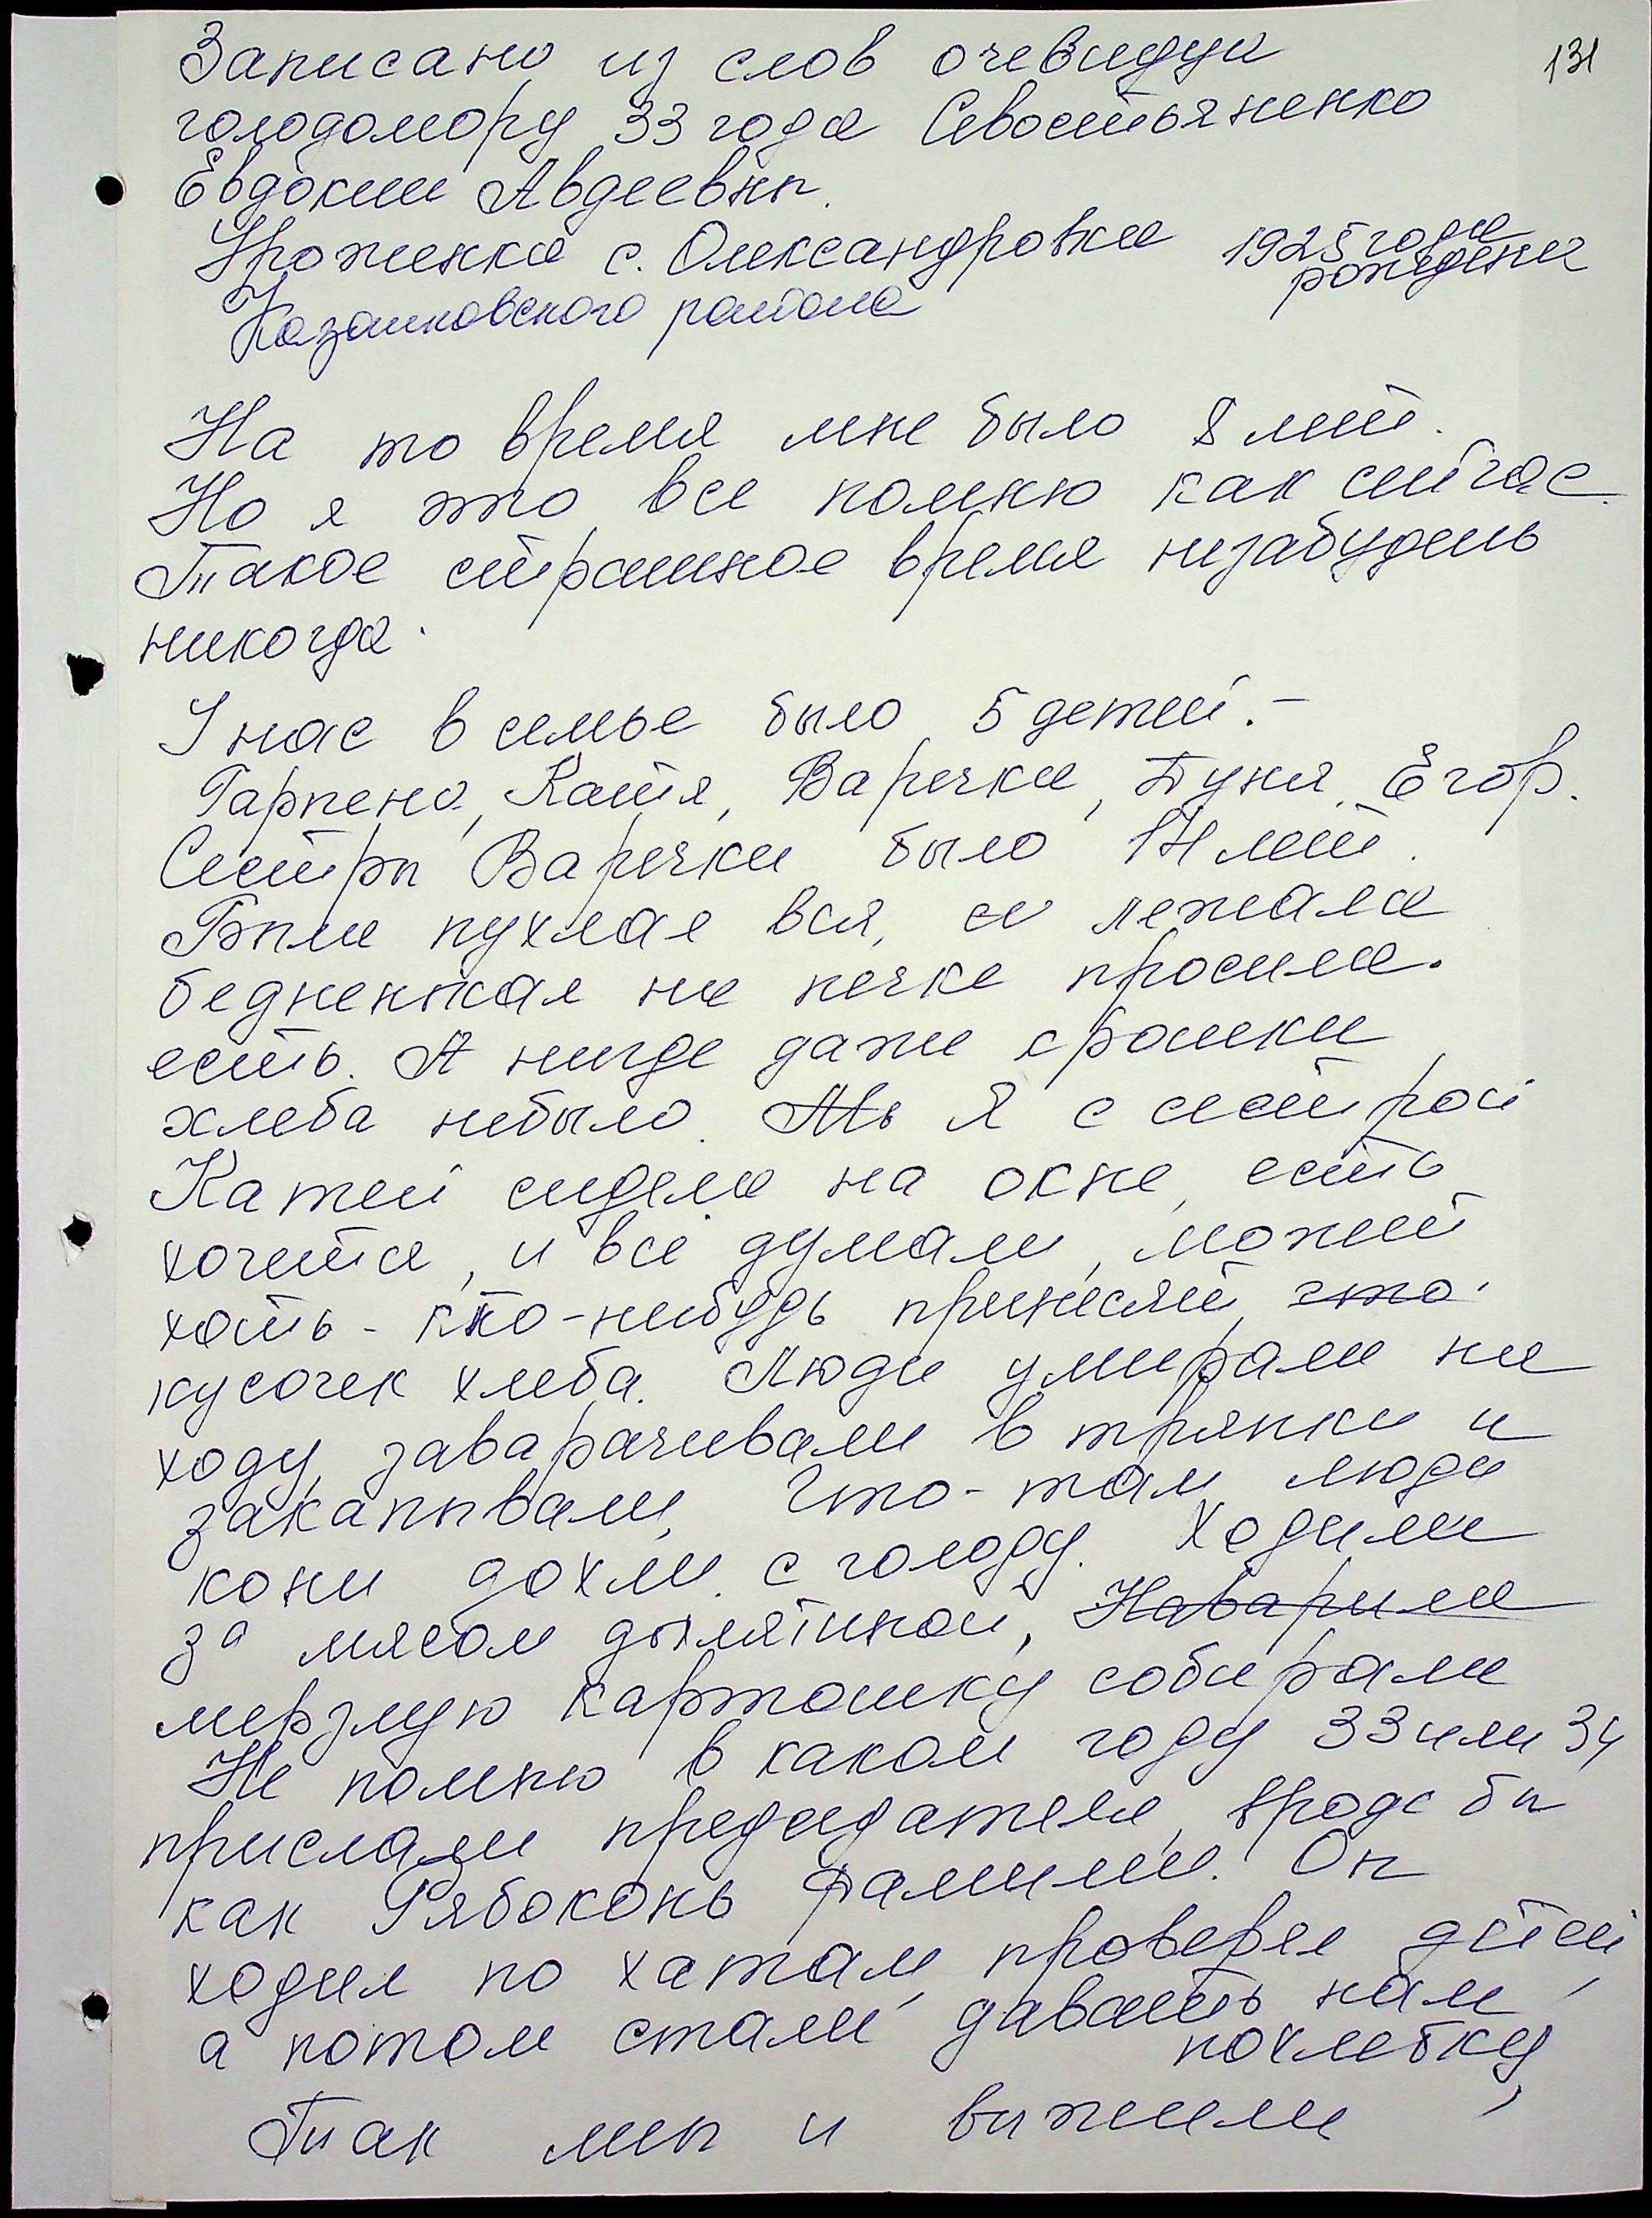 131
Записано из слов очевидци
голодомору 33 года Севостьяненко
Евдокии Авдеевны.
Уроженка с. Олександровка 1925 года
рождения
Казанковского района
На то время мне было 8 лет.
Но я это все помню как сейчас.
Такое страшное время незабудешь
никогда.
У нас в семье было 5 детей. –
Гарпена, Катя, Варечка, Дуня, Егор.
Сестры Варечки было 14 лет.
Была пухлая вся, и лежала
бедненькая на печке просила.
есть. А нигде даже крошки
хлеба небыло. Мы Я с сестрой
Катей сидела на окне, есть
хочется, и всё думали, может
хоть - кто-нибудь принесет, что.
кусочек хлеба. Люди умирали на
ходу, заварачивали в тряпки и
закапывали, Что-там люди
кони дохли с голоду. Ходили
за мясом дохлятиной, Наварили
мерзлую картошку собирали
Не помню в каком году 33 или 34
прислали председателя, вроде бы
как Рябоконь фамилия. Он
ходил по хатам, проверял детей,
а потом стали давать нам
похлебку,
Так мы и выжили